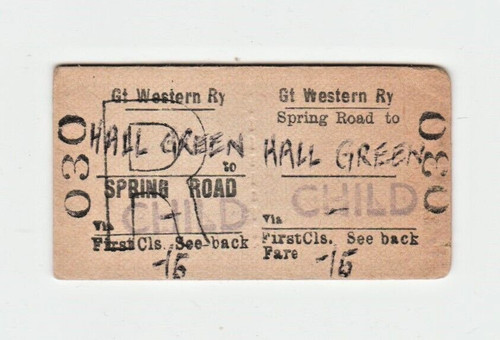 030
Gt Western Ry
HALL GREEN
to
SPRING ROAD
CHILD
Via -
FirstCls. See back
-/5
R
Gt Western Ry
Spring Road to
HALL GREEN
CHILD
Via -
FirstCls. See back
Fare -/5
030